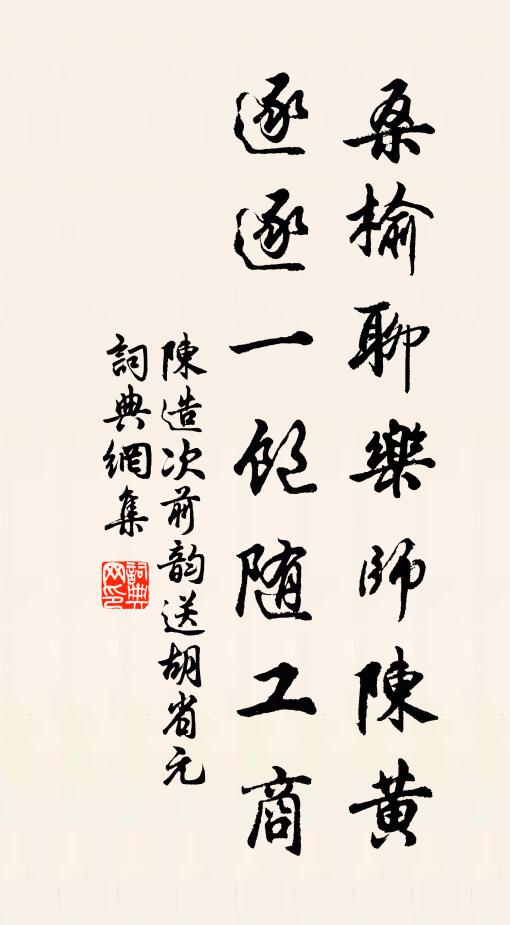 桑榆聊樂師陳黃
逐逐一飽随工商
陳造次前韵送胡省元
詞典網集
詞典网印